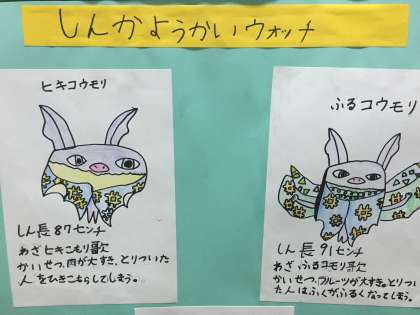 しんかようかいウォッチ
ヒキコウモリ
しん長87センチ
わざヒキこもり歌
かいせつ、肉が大すき。とりついた
人をひきこもらしてしまう。
ふるコウモリ
しん長91センチ
わざふるコウモリ歌
かいせつ、フルーツが大すき。とりつい
た人はふくがふるくなってしまう。